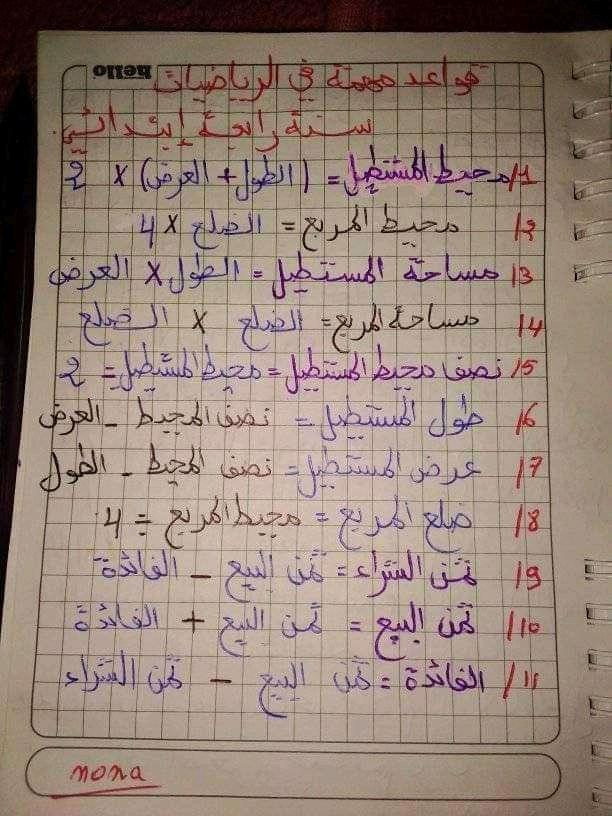 hello
قواعد مهمة في الرياضيات
سنة رابعة إبتدائي
1/ محيط المستطيل = (الطول + العرض) × 2
2/ محيط المربع = الضلع × 4
3/ مساحة المستطيل = الطول × العرض
4/ مساحة المربع = الضلع × الضلع
5/ نصف محيط المستطيل = محيط المستطيل ÷ 2
6/ طول المستطيل = نصف المحيط - العرض
7/ عرض المستطيل = نصف المحيط - الطول
8/ ضلع المربع = محيط المربع ÷ 4
9/ ثمن الشراء = ثمن البيع - الفائدة
10/ ثمن البيع = ثمن البيع + الفائدة
11/ الفائدة = ثمن البيع - ثمن الشراء
nona